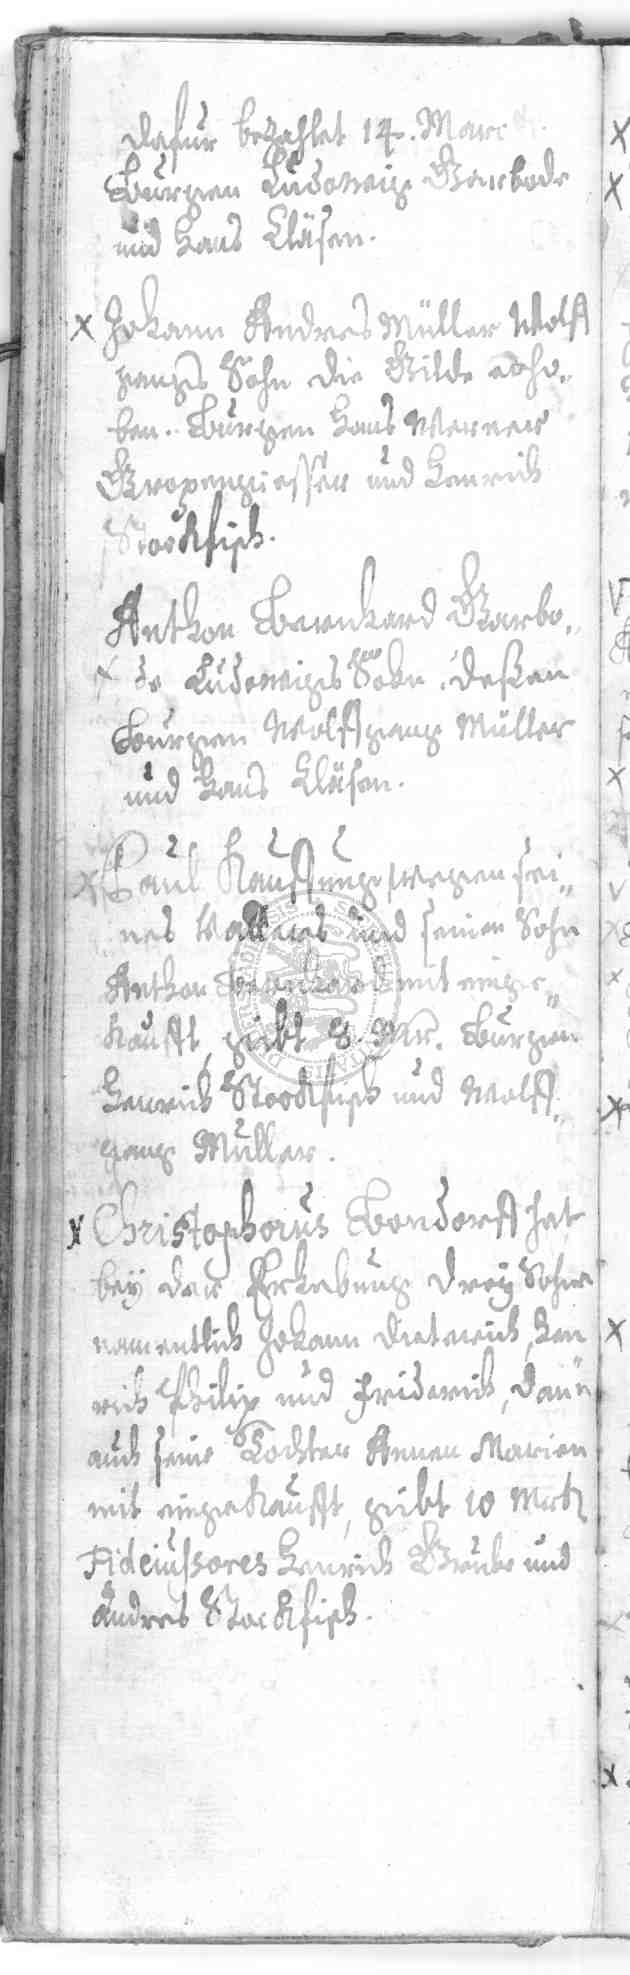 dafür bezahlet 14. Marc
Bürgen Ludowig Garbode
und Hans Cläsen.
x Johann Andres Müller Wolff
gangs Sohn die Gilde erho„
ben. Bürgen Hans Werner
Gropengiesser und Henrich
Stockfisch.
Anthon Bernhard Garbo„
x de Ludowigs Sohn. deßen
Bürgen Wolffgang Müller
und Hans Cläsen.
x Paul Kauffung, wegen sei„
nes Vatters und seinen Sohn
Anthon Bernhard mit einge„
kaufft, giebt 8. Mr. Bürgen
Henrich Stockfisch und Wolff„
gang Müller.
x Christophorus Bondorff hat
bey der Erhebung drey Sohne
namentlich Johann Dieterich, Hen
rich Philip und Friderich, dann
auch seine Tochter Annen Marien
mit eingekaufft, giebt 10 Mrk
Fideiussores Henrich Grube und
Andres Stockfisch.